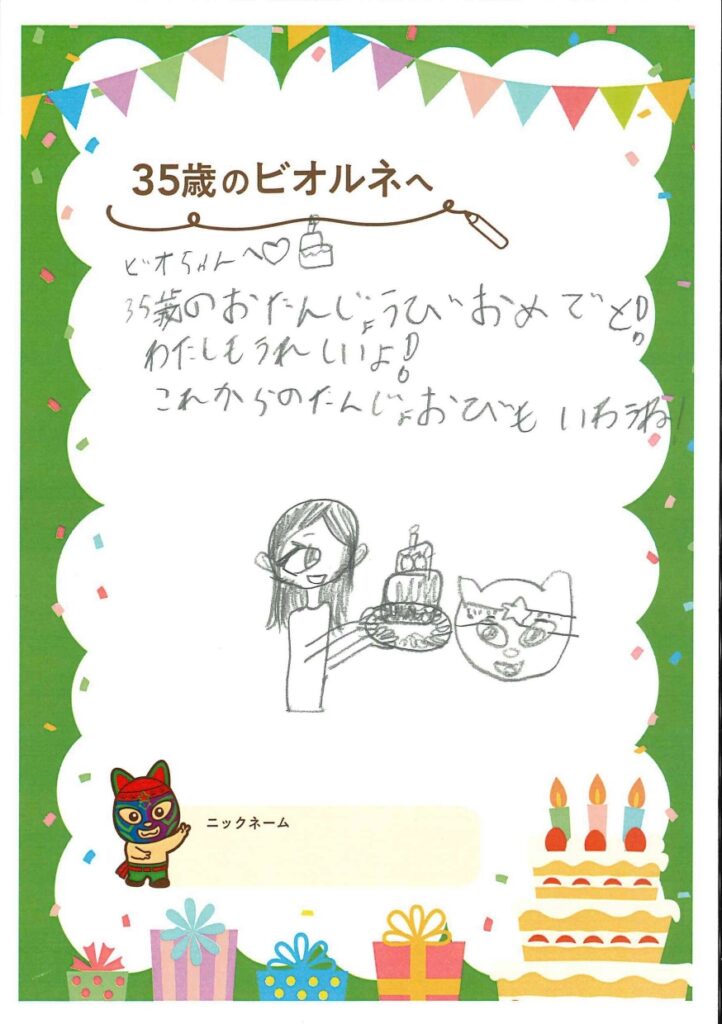 35歳のビオルネへ
ビオちゃんへ♡
35歳のおたんじょうびおめでと!
わたしもうれしいよ!
これからのたんじょおびも いわうね!
ニックネーム